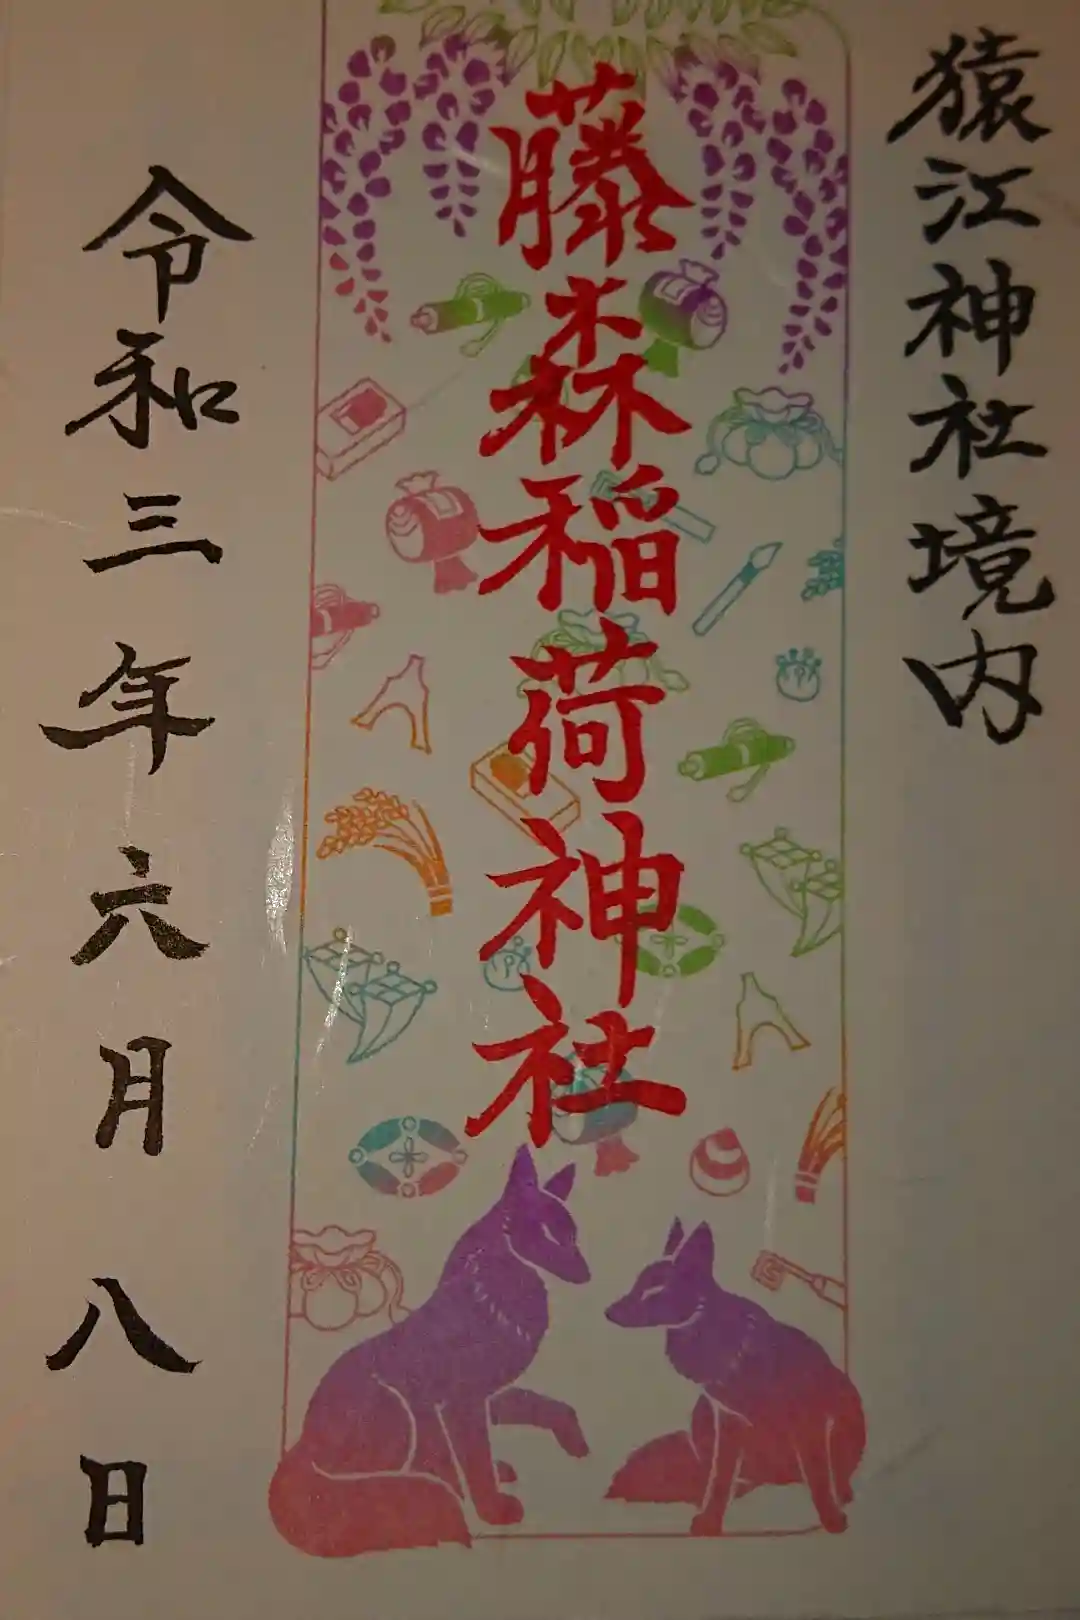 猿江神社境内
藤森稲荷神社
令和三年六月八日